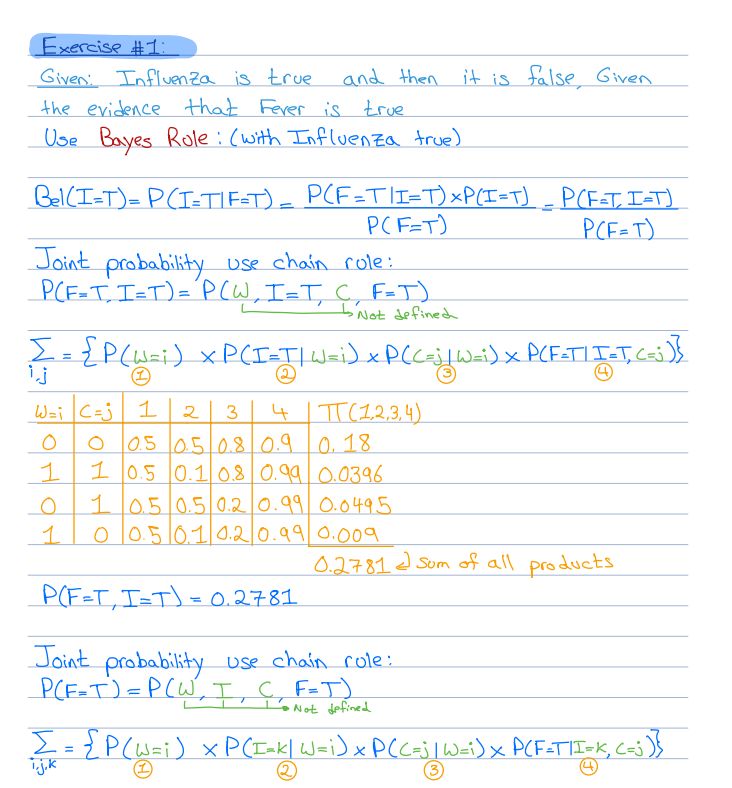 Exercise #1:
Given: Influenza is true and then it is false, Given
the evidence that Fever is true
Use Bayes Role: (with Influenza true)
Bel(I=T) = P(I=T|F=T) = P(F=T|I=T)×P(I=T) / P(F=T) = P(F=T, I=T) / P(F=T)
Joint probability use chain role:
P(F=T, I=T) = P(W, I=T, C, F=T)
Not defined
∑ = {P(W=i) × P(I=T|W=i) × P(C=j|W=i) × P(F=T|I=T, C=j)}
i,j ① ② ③ ④
W=i C=j 1 2 3 4 π(1,2,3,4)
0 0 0.5 0.5 0.8 0.9 0.18
1 1 0.5 0.1 0.8 0.99 0.0396
0 1 0.5 0.5 0.2 0.99 0.0495
1 0 0.5 0.1 0.2 0.99 0.009
0.2781 sum of all products
P(F=T, I=T) = 0.2781
Joint probability use chain role:
P(F=T) = P(W, I, C, F=T)
Not defined
∑ = {P(W=i) × P(I=k|W=i) × P(C=j|W=i) × P(F=T|I=k, C=j)}
i,j,k ① ② ③ ④